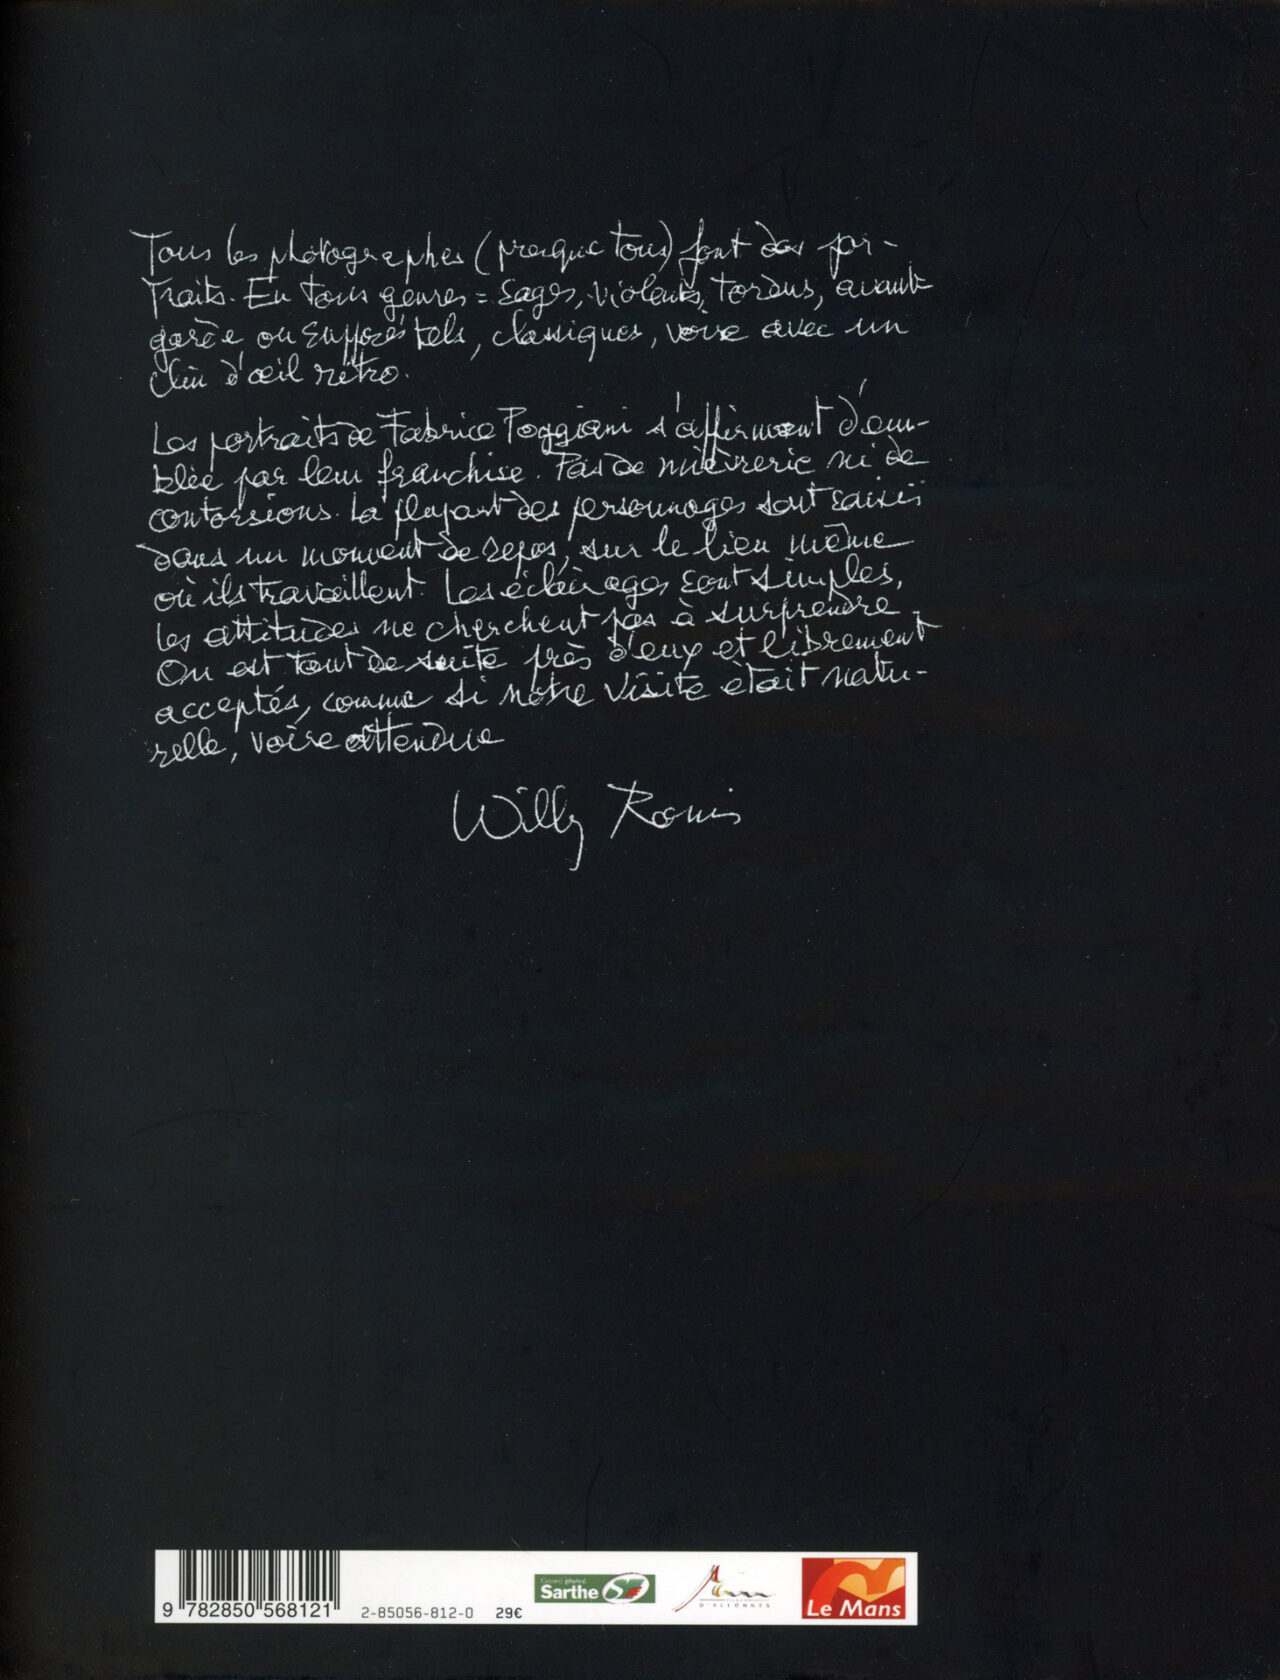 Tous les photographes (presque tous) font des por-
traits. En tous genres = sages, violents, tordus, avant-
garde ou supposés tels, classiques, voire avec un
clin d'œil rétro.
Les portraits de Fabrice Poggiani s'affirment d'em-
blée par leur franchise. Pas de mièvrerie ni de
contorsions. La plupart des personnages sont saisis
dans un moment de repos, sur le lieu même
où ils travaillent. Les éclairages sont simples,
les attitudes ne cherchent pas à surprendre.
On est tout de suite près d'eux et librement
acceptés, comme si notre visite était natu-
relle, voire attendue
Willy Ronis
9 782850 568121
2-85056-812-0 29€
Conseil général
Sarthe
D'ALLONNES
Le Mans